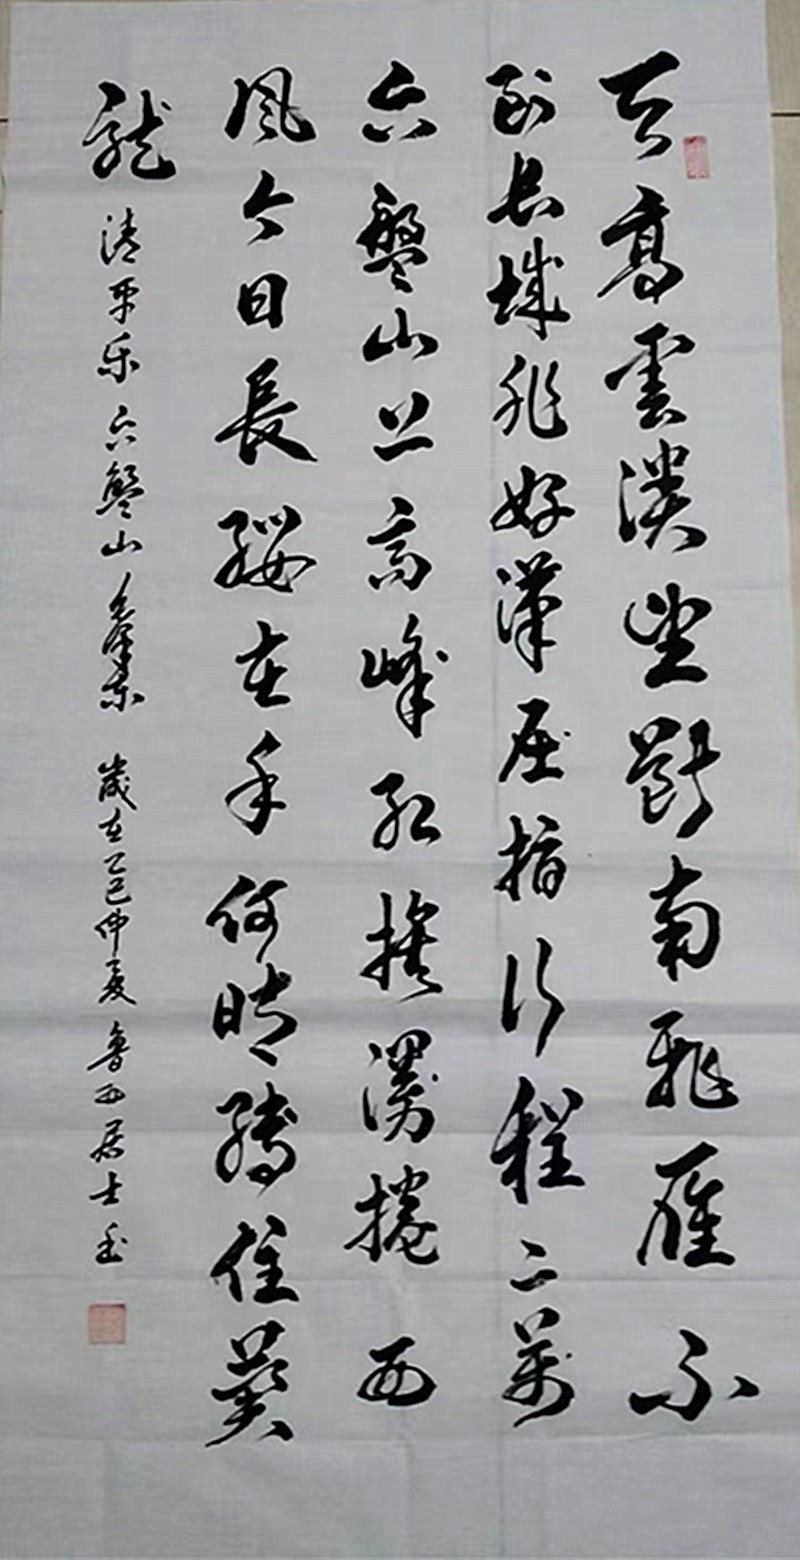 天高雲淡望斷南飛雁不
到长城非好漢屈指行程二萬
六盤山上高峰红旗漫捲西
風今日長纓在手何時縛住蒼
龍 清平乐六盤山 毛泽东 歲在乙巳仲夏 魯西居士